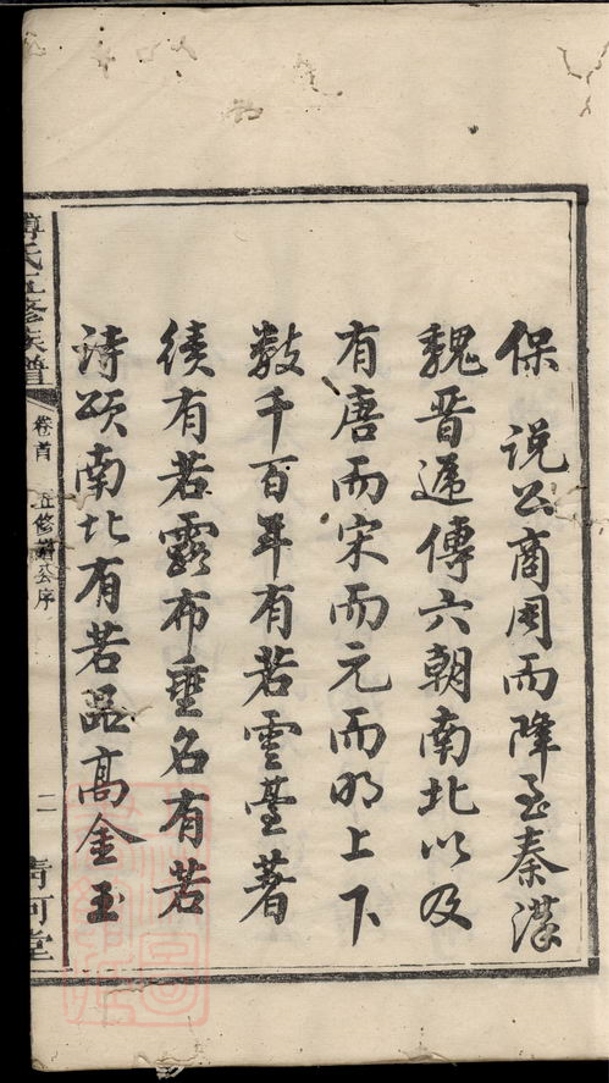 保 说公商周而降至秦漢
魏晋逓傳六朝南北以及
有唐而宋而元而明上下
数千百年有若雲臺著
績有若露布垂名有若
诗颂南北有若品高金玉
傅氏五修族譜
卷首 五修譜公序
二
清河堂